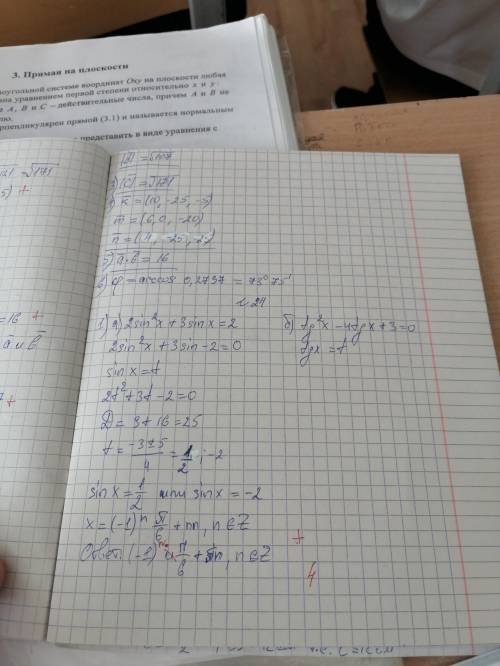 3. Прямая на плоскости
системе координат Oxy на плоскости любая
уравнением первой степени относительно x и y:
A, B и C – действительные числа, причем A и B не
перпендикулярен прямой (3.1) и называется нормальным
представить в виде уравнения с
= √171
+
= 16 +
+
|c̅| = √171
k̅ = (10, -25, -5)
m̅ = (6, 0, -20)
5) a̅·b̅ = 16
6) φ = arccos 0,2737 = 73° 75'
№24
1) a) 2sin²x + 3sinx = 2
2sin²x + 3sin - 2 = 0
sinx = t
2t² + 3t - 2 = 0
D = 9 + 16 = 25
t = (-3 ± 5)/4 = 1/2 ; -2
sinx = 1/2 или sinx = -2
x = (-1)ⁿ π/6 + πn, n ∈ Z
Ответ: (-1)ⁿ π/6 + πn, n ∈ Z
б) tg²x - 4tgx + 3 = 0
tgx = t
+
4